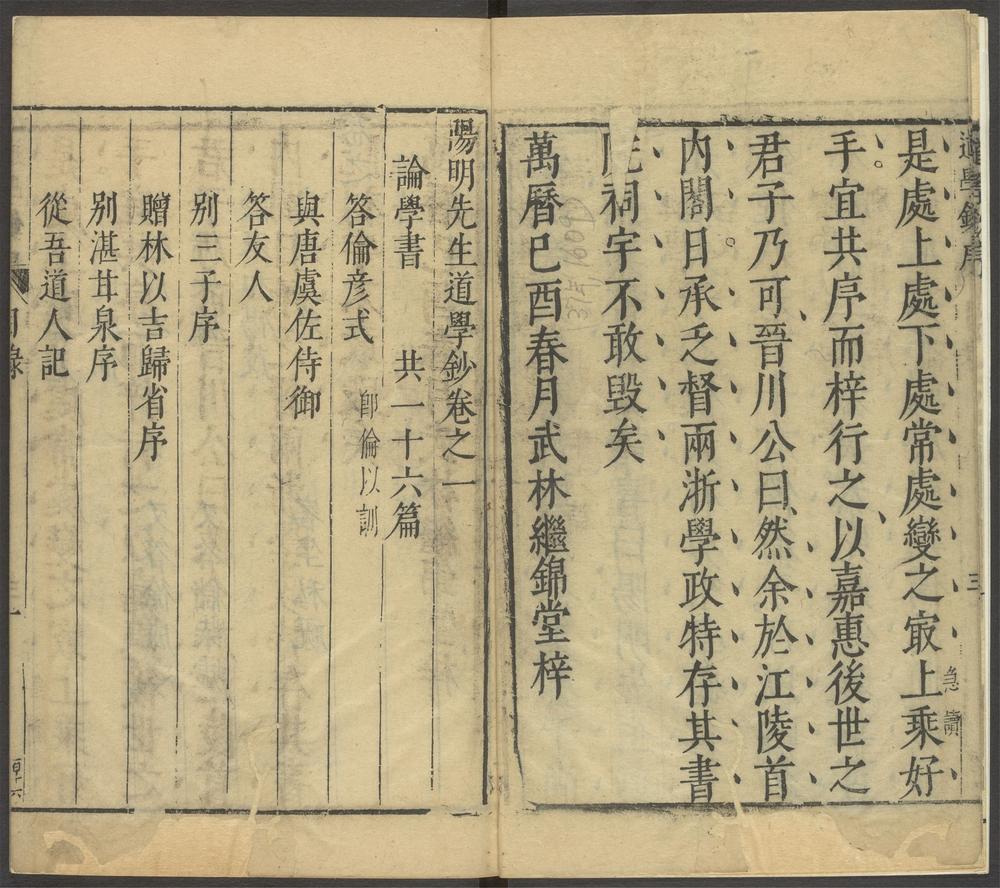 道學鈔序
三
是處上處下處常處變之㝡上乘好
急讀
手宜共序而梓行之以嘉惠後世之
君子乃可晉川公曰然余於江陵首
內閣日承乏督兩浙學政特存其書
院祠宇不敢毀矣
萬曆己酉春月武林繼錦堂梓
陽明先生道學鈔卷之一
論學書 共一十六篇
答倫彥式 卽倫以訓
與唐虞佐侍御
答友人
別三子序
贈林以吉歸省序
別湛甘泉序
從吾道人記
目錄